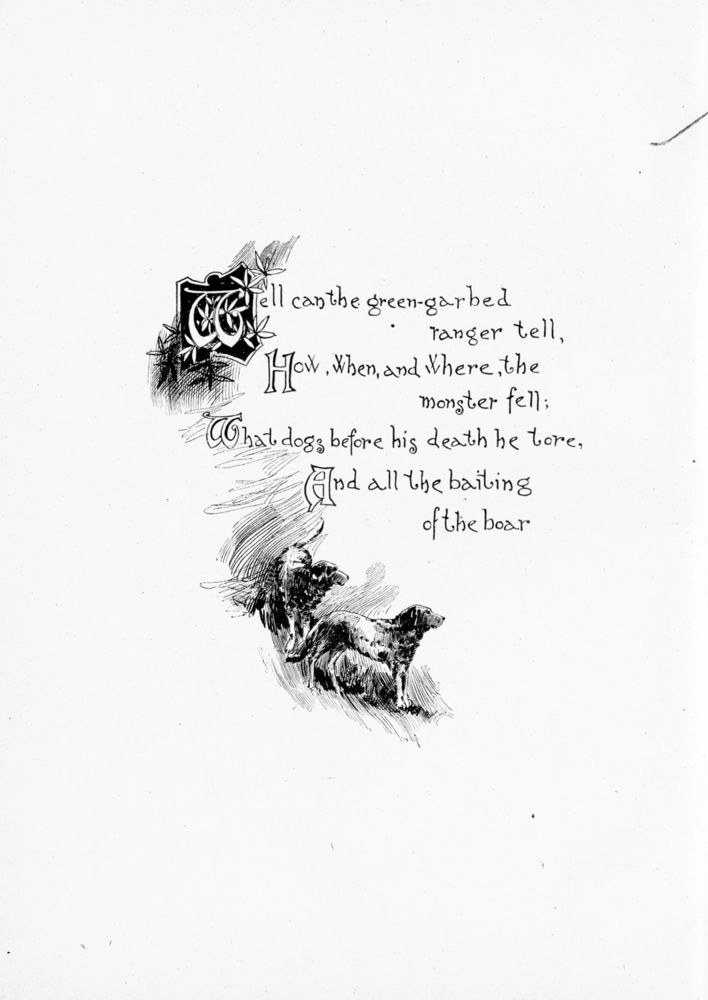 Well can the green-garbed
ranger tell,
How, When, and Where, the
monster fell;
What dogs before his death he tore,
And all the baiting
of the boar